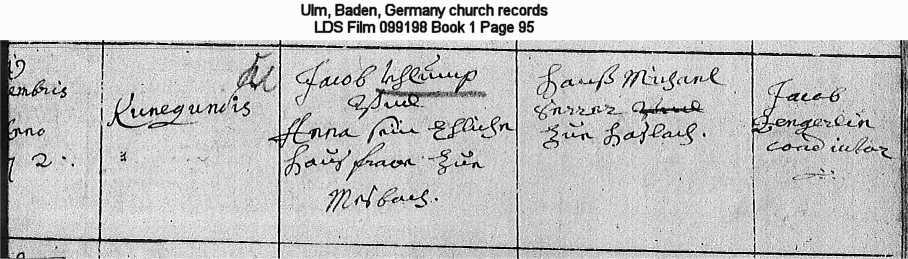 Ulm, Baden, Germany church records
LDS Film 099198 Book 1 Page 95
embris
Kunegundis
Jacob Schlump
Vnd
Anna sein Ehliche
Haus frawe zue
Mesbach.
Hanß Michael
zue Haslach.
Jacob
Zengerlin
coadiutor